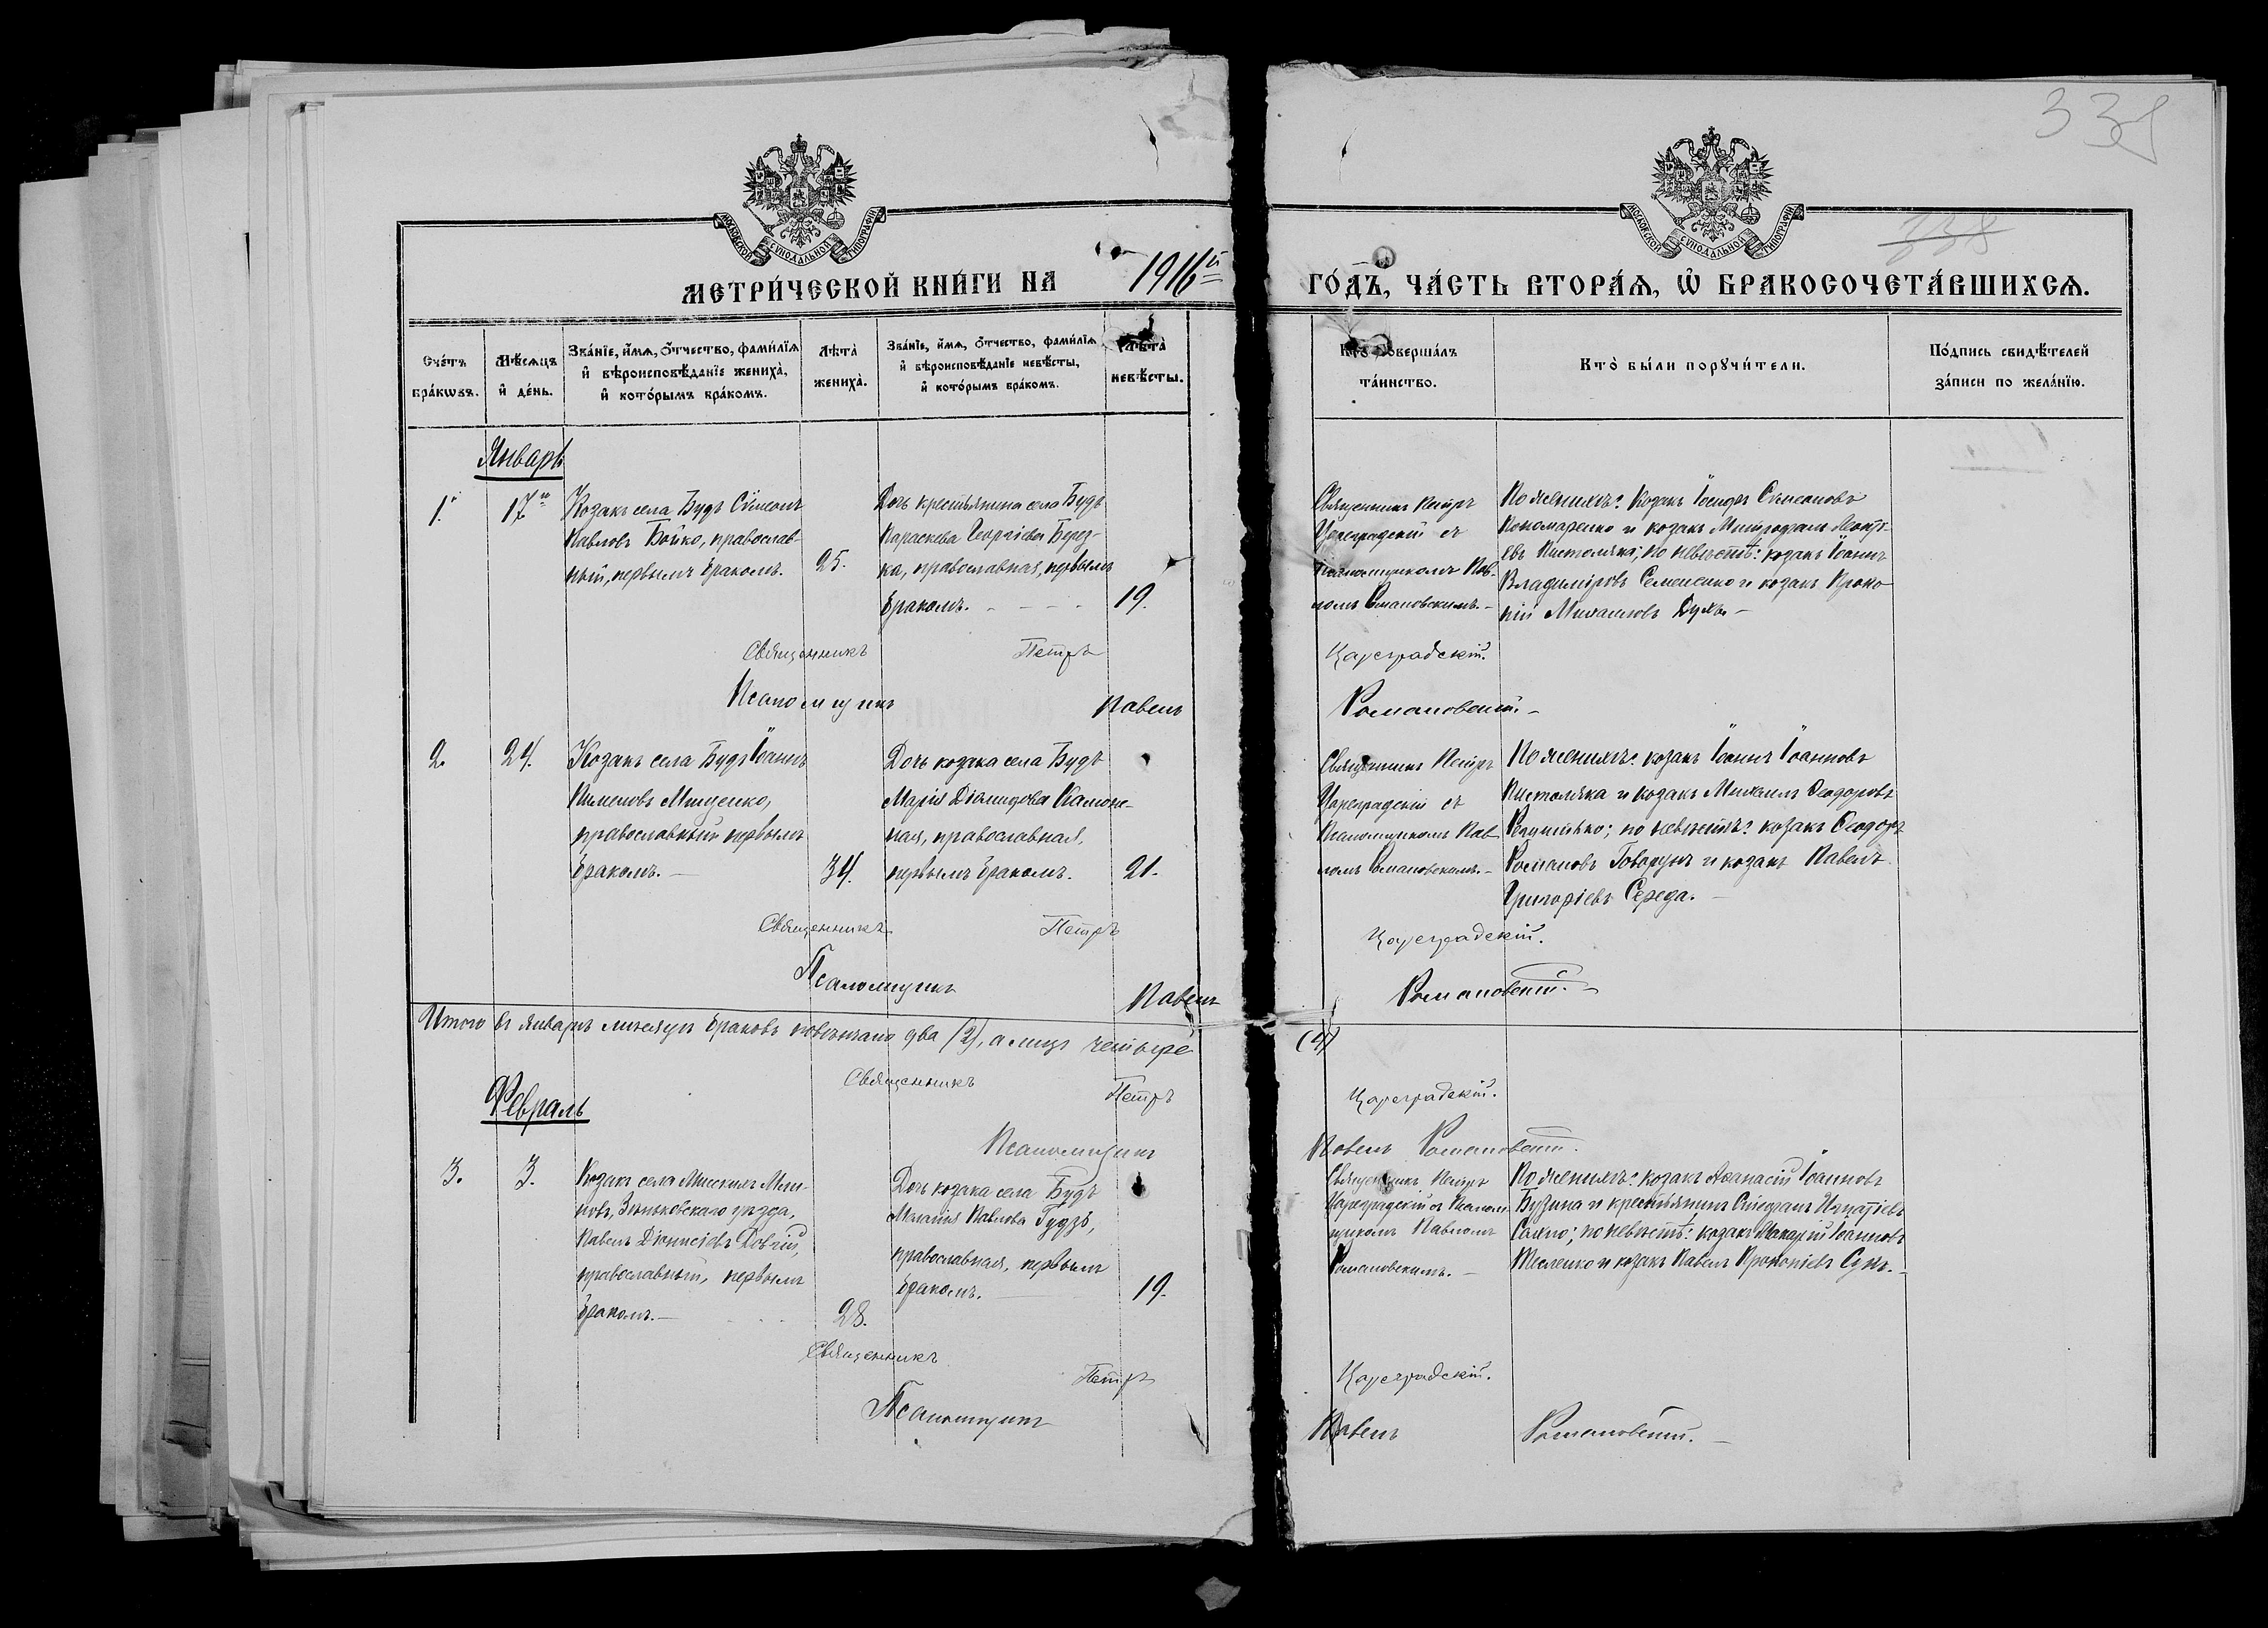 339
338
МОСКОВСКОЙ СѴНОДАЛЬНОЙ ТИПОГРАФІИ
МОСКОВСКОЙ СѴНОДАЛЬНОЙ ТИПОГРАФІИ
МЕТРИ́ЧЕСКОЙ КНИ́ГИ НА 1916й ГО́ДЪ, ЧА́СТЬ ВТОРА́Ѧ, Ѽ БРАКОСОЧЕТА́ВШИХСѦ.
Сче́тъ бра́кѡвъ.
Мѣ́сяцъ и҆ де́нь.
Зва́нїе, и҆́мѧ, ѻ҆́тчество, фами́лїѧ и҆ вѣроисповѣ́данїе жениха̀, и҆ кото́рымъ бра́комъ.
Лѣта̀ жениха̀.
Зва́нїе, и҆́мѧ, ѻ҆́тчество, фами́лїѧ и҆ вѣроисповѣ́данїе невѣ́сты, и҆ кото́рымъ бра́комъ.
Лѣта̀ невѣ́сты.
Кто̀ соверша́лъ та́инство.
Кто̀ бы́ли порꙋчи́тели.
По́дпись свидѣ́телей за́писи по жела́нїю.
Январь
1.
17го
Козакъ села Будъ Сѵмеонъ
Павловъ Бойко, православ-
ный, первымъ бракомъ.
25.
Дочь крестьянина села Будъ
Параскева Георгіева Берез-
ка, православная, первымъ
бракомъ.
19.
Священникъ Петръ
Цареградскій съ
Псаломщикомъ Пав-
ломъ Романовскимъ.
По женихѣ: козакъ Іосифъ Сѵмеоновъ
Пономаренко и козакъ Митрофанъ
Пистоляка; по невѣстѣ: козакъ Іоаннъ
Владиміровъ Семененко и козакъ Проко-
пій Михаиловъ
Священникъ Петръ Цареградскій.
Псаломщикъ Павелъ Романовскій.
2.
24.
Козакъ села Будъ Іоаннъ
Пименовъ Мищенко,
православный первымъ
бракомъ.
34.
Дочь козака села Будъ
Марія Діомидова
православная,
первымъ бракомъ.
21.
Священникъ Петръ
Цареградскій съ
Псаломщикомъ Пав
ломъ Романовскимъ.
По женихѣ: козакъ Іоаннъ Іоанновъ
Пистоляка и козакъ Михаилъ Ѳеодоровъ
по невѣстѣ: козакъ Ѳеодоръ
Романовъ Говорунъ и козакъ Павелъ
Григоріевъ Середа.
Священникъ Петръ Цареградскій.
Псаломщикъ Павелъ Романовскій.
Итого въ январѣ мѣсяцѣ браковъ повѣнчано два (2), а лицъ четыре (4)
Священникъ Петръ Цареградскій.
Псаломщикъ Павелъ Романовскій.
Февраль
3.
3.
Козакъ села
Зѣньковскаго уѣзда,
Павелъ Діонисіевъ Довгій,
православный, первымъ
бракомъ.
28.
Дочь козака села Будъ
Меланія Павлова Гудзь,
православная, первымъ
бракомъ.
19.
Священникъ Петръ
Цареградскій съ Псалом-
щикомъ Павломъ
Романовскимъ.
По женихѣ: козакъ Аѳанасій Іоанновъ
Бузина и крестьянинъ Стефанъ Игнатіевъ
по невѣстѣ: козакъ Макарій Іоанновъ
Тесленко и козакъ Павелъ Прокопіевъ
Священникъ Петръ Цареградскій.
Псаломщикъ Павелъ Романовскій.